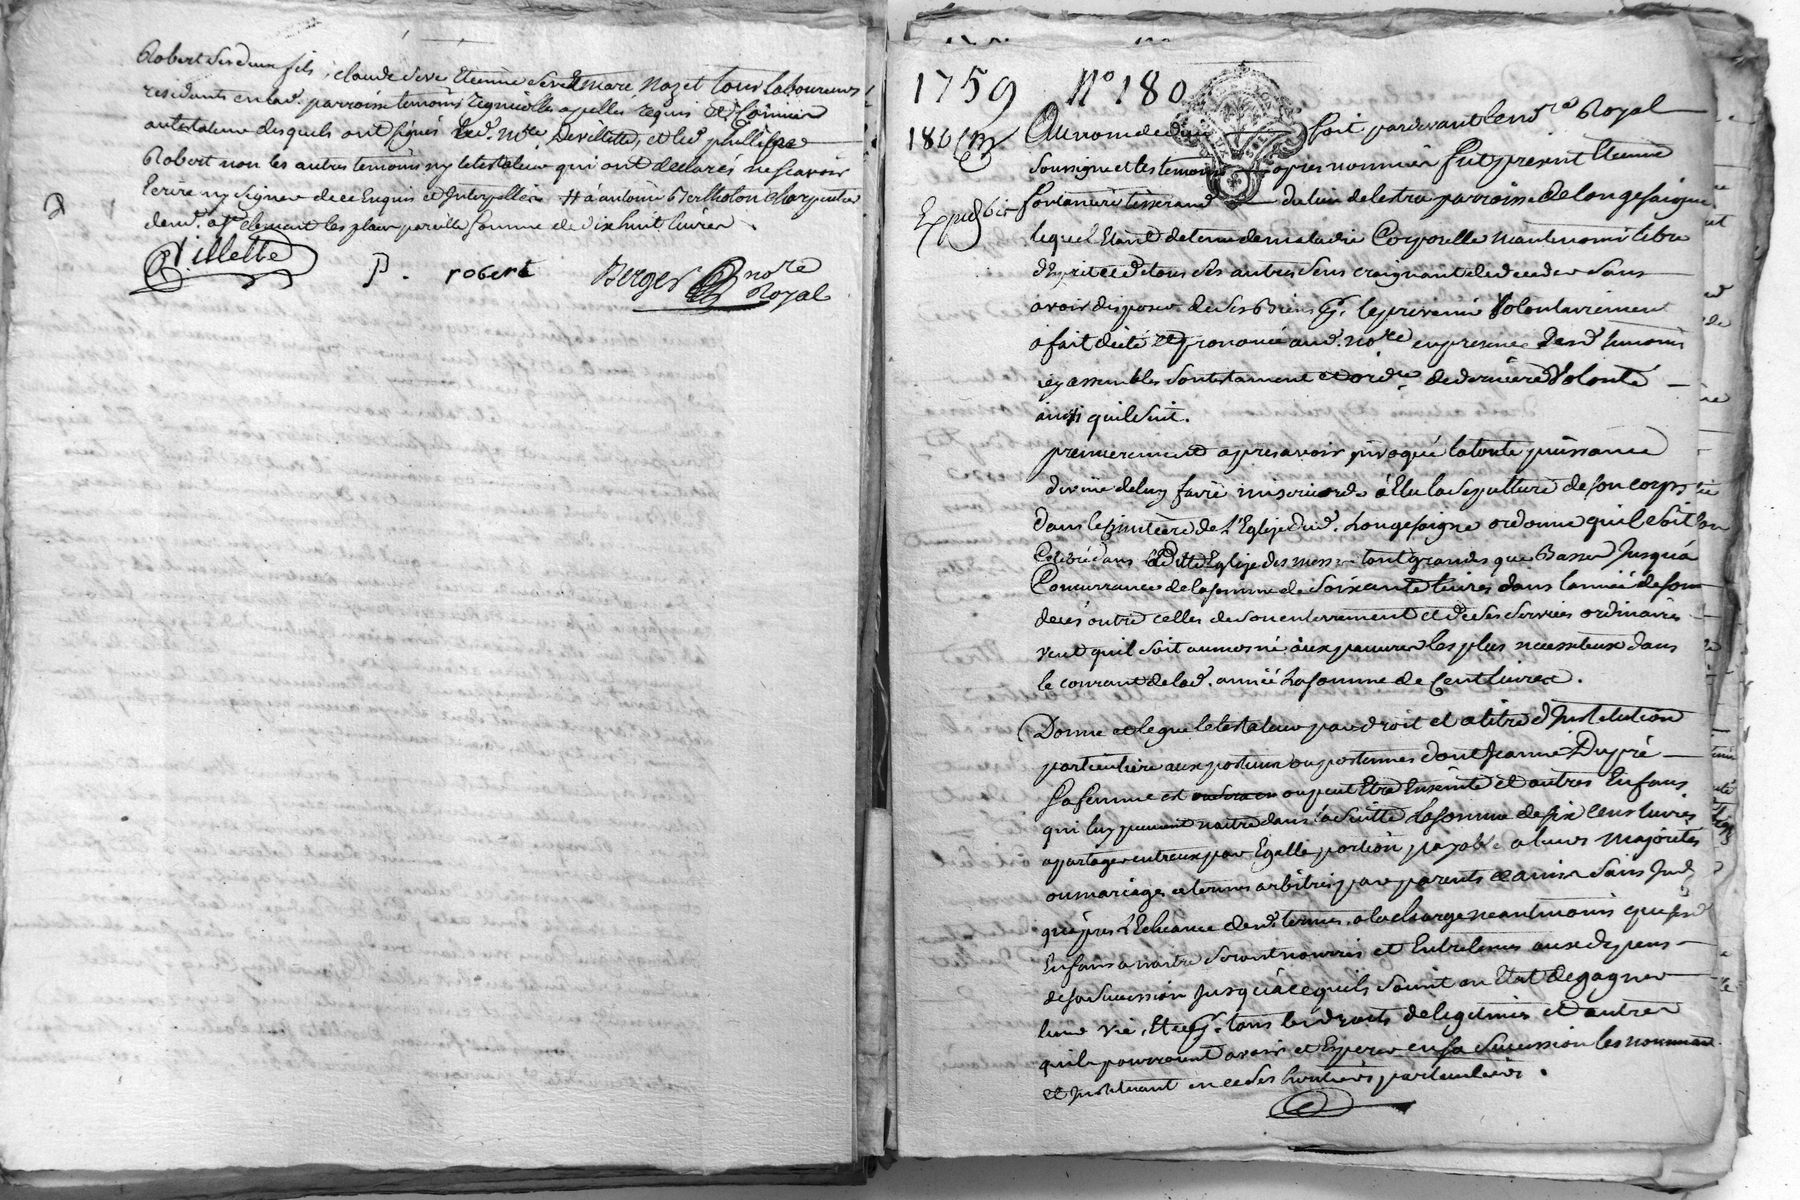 Robert ses deux fils, claude seve Etienne seve Et marc Nozet tous laboureurs
residants en lad. parroisse temoins requis
au testateur desquels ont signés led. me. Devillette, et led. phillippe
Robert non les autres temoins ny le testateur qui ont declarés ne scavoir
Ecrire ny signer de ce Enquis et Interpellés # a antoine Bertholon charpentier
dem. aussy la somme de dix huit livres.
Dillette
P. robert
Berger nore Royal
1759 No 180
180
Au nom de dieu soit, pardevant le nore Royal
soussigne et les temoins apres nommés fut present Etienne
fontaniere tisserand du lieu de lestra parroisse de longesaigne
lequel Etant detenu de maladie Corporelle neantmoins libre
d'Esprit et de tous ses autres sens craignant de deceder sans
avoir disposer de ses Biens pr. le prevenir Volontairement
a fait dicté et prononcé aud. nore en presence desd. temoins
icy assemblés son testament et ordce de derniere Volonté
ainsy quil suit.
premierement apres avoir invoqué la toute puissance
divine de luy faire misericorde a Elu la sepulture de son corps
dans le simitiere de l'Eglise dud. Longesaigne ordonne quil soit
Celebré dans laditte Eglise des messes tant grandes que Basses Jusqu'a
Concurrance de la somme de soixante livres dans l'année de son
deces outre celles de son enterrement et de ses services ordinaires
veut quil soit aumosné aux pauvres les plus necessiteux dans
le courant de lad. année La somme de Cent livres.
Donne et legue le testateur par droit et a titre d'Institution
particuliere aux postume ou postumes dont Jeanne Dupré
sa femme est ou peut Etre Enseinte et autres Enfans
qui luy peuvent naitre dans la suitte La somme de six cens livres
a partager entreux par Egalle portion payable a leurs majorités
ou mariages et termes arbitrés par parents et amis sans
qu'apres l'Echeance desd. termes, a la charge neantmoins que sesd.
Enfans a naitre seront nourris et Entretenus aux depens
de sa succession Jusqu'a ce quils soient en Etat de gagner
leur vie, Et ce pr. tous les droits de legitimes et autres
quils pourroient avoir et Esperer en sa succession les nommant
et Instituant en ce ses heritiers particuliers.